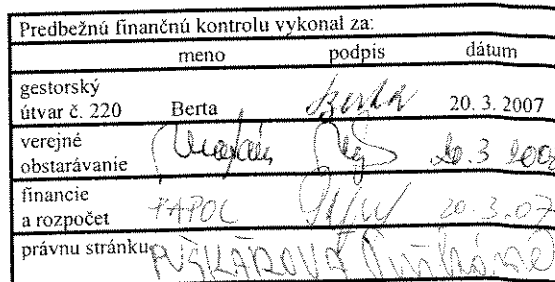 Predbežnú finančnú kontrolu vykonal za:
meno podpis dátum
gestorský
útvar č. 220 Berta Berta 20. 3. 2007
verejné
obstarávanie 20.3
financie
a rozpočet 20.3.07
právnu stránku